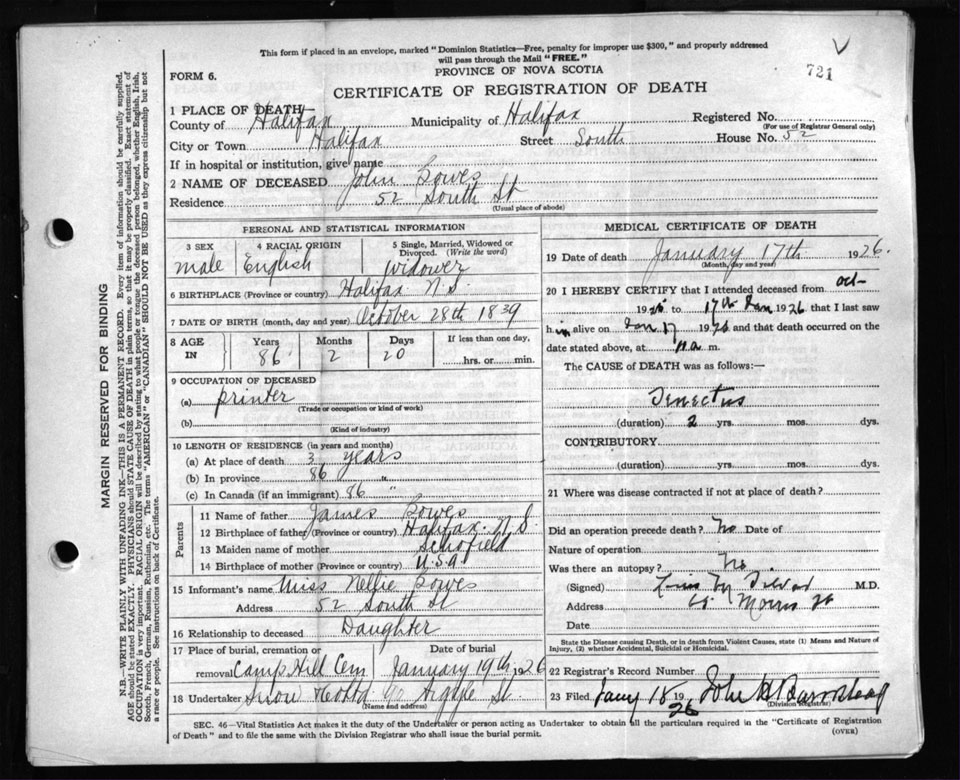 This form if placed in an envelope, marked "Dominion Statistics—Free, penalty for improper use $300," and properly addressed
will pass through the Mail "FREE."
721
FORM 6.
PROVINCE OF NOVA SCOTIA
CERTIFICATE OF REGISTRATION OF DEATH
1 PLACE OF DEATH—
County of Halifax Municipality of Halifax Registered No.
(For use of Registrar General only)
City or Town Halifax Street South House No. 52
If in hospital or institution, give name
2 NAME OF DECEASED John Bowes
Residence 52 South St
(Usual place of abode)
PERSONAL AND STATISTICAL INFORMATION
3 SEX 4 RACIAL ORIGIN 5 Single, Married, Widowed or Divorced. (Write the word)
male English widower
6 BIRTHPLACE (Province or country) Halifax N.S.
7 DATE OF BIRTH (month, day and year) October 28th 1839
8 AGE IN Years Months Days If less than one day,
86 2 20 hrs. or min.
9 OCCUPATION OF DECEASED
(a) printer
(Trade or occupation or kind of work)
(b)
(Kind of industry)
10 LENGTH OF RESIDENCE (in years and months)
(a) At place of death 3 years
(b) In province 86 "
(c) In Canada (if an immigrant) 86 "
Parents
11 Name of father James Bowes
12 Birthplace of father (Province or country) Halifax N.S.
13 Maiden name of mother Schofield
14 Birthplace of mother (Province or country) U.S.A
15 Informant's name Miss Nellie Bowes
Address 52 South St
16 Relationship to deceased Daughter
17 Place of burial, cremation or removal Date of burial
Camp Hill Cem January 19th 1926
18 Undertaker Snow 90 Argyle St.
(Name and address)
MEDICAL CERTIFICATE OF DEATH
19 Date of death January 17th 1926.
(Month, day and year)
20 I HEREBY CERTIFY that I attended deceased from Oct
1925 to 17th Jan 1926 that I last saw
him alive on Jan 17 1926 and that death occurred on the
date stated above, at m.
The CAUSE of DEATH was as follows:—
Senectus
(duration) 2 yrs. mos. dys.
CONTRIBUTORY
(duration) yrs. mos. dys.
21 Where was disease contracted if not at place of death?
Did an operation precede death? No Date of
Nature of operation
Was there an autopsy? No.
(Signed) Louis M Silver M.D.
Address Morris St
Date
State the Disease causing Death, or in death from Violent Causes, state (1) Means and Nature of
Injury, (2) whether Accidental, Suicidal or Homicidal.
22 Registrar's Record Number
23 Filed Jany 18 1926 John
(Division Registrar)
SEC. 46—Vital Statistics Act makes it the duty of the Undertaker or person acting as Undertaker to obtain all the particulars required in the "Certificate of Registration
of Death" and to file the same with the Division Registrar who shall issue the burial permit.
(OVER)
MARGIN RESERVED FOR BINDING
N.B.—WRITE PLAINLY WITH UNFADING INK—THIS IS A PERMANENT RECORD. Every item of information should be carefully supplied.
AGE should be stated EXACTLY. PHYSICIANS should STATE CAUSE OF DEATH in plain terms, so that it may be properly classified. Exact statement of
OCCUPATION is very important. RACIAL ORIGIN will be described by stating to what people or tongue the deceased person belonged, whether English, Irish,
Scotch, French, German, Russian, Ruthenian, etc. The terms "AMERICAN" or "CANADIAN" SHOULD NOT BE USED as they express citizenship but not
a race or people. See instructions on back of Certificate.